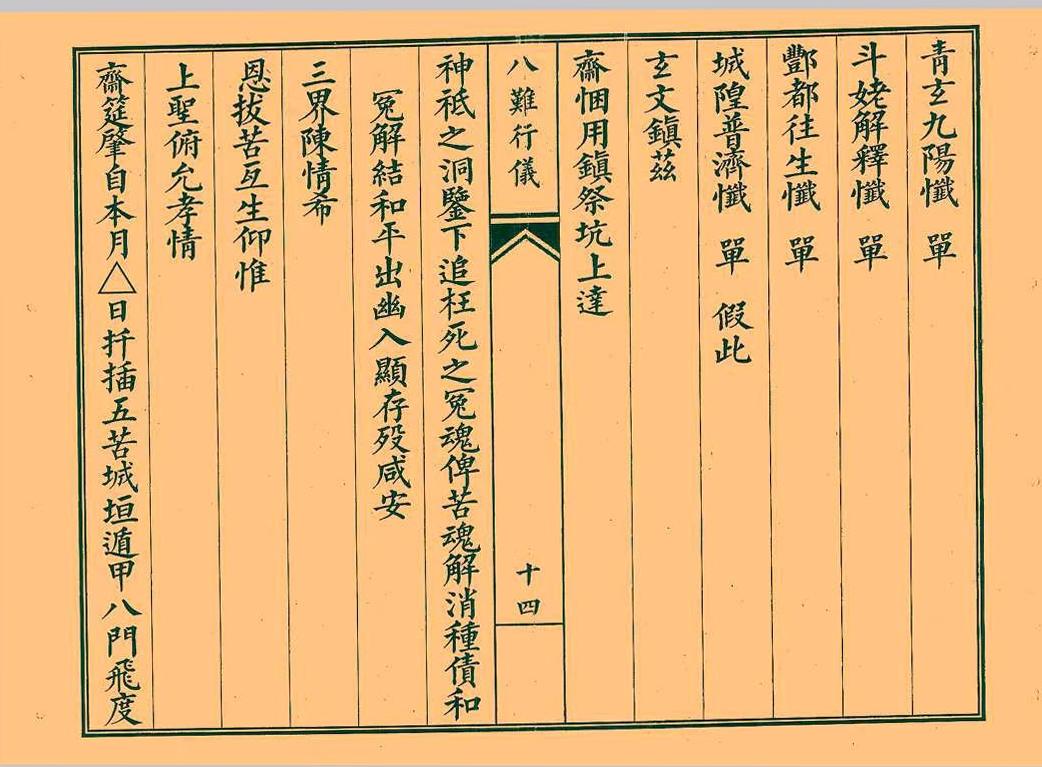 青玄九陽懺 單
斗姥解釋懺 單
酆都往生懺 單
城隍普濟懺 單 假此
玄文鎮茲
齋悃用鎮祭坑上達
八難行儀 十四
神祇之洞鑒下追枉死之冤魂俾苦魂解消種債和
冤解結和平出幽入顯存歿咸安
三界陳情希
恩拔苦亙生仰惟
上聖俯允孝情
齋筵肇自本月△日扦插五苦城垣遁甲八門飛度